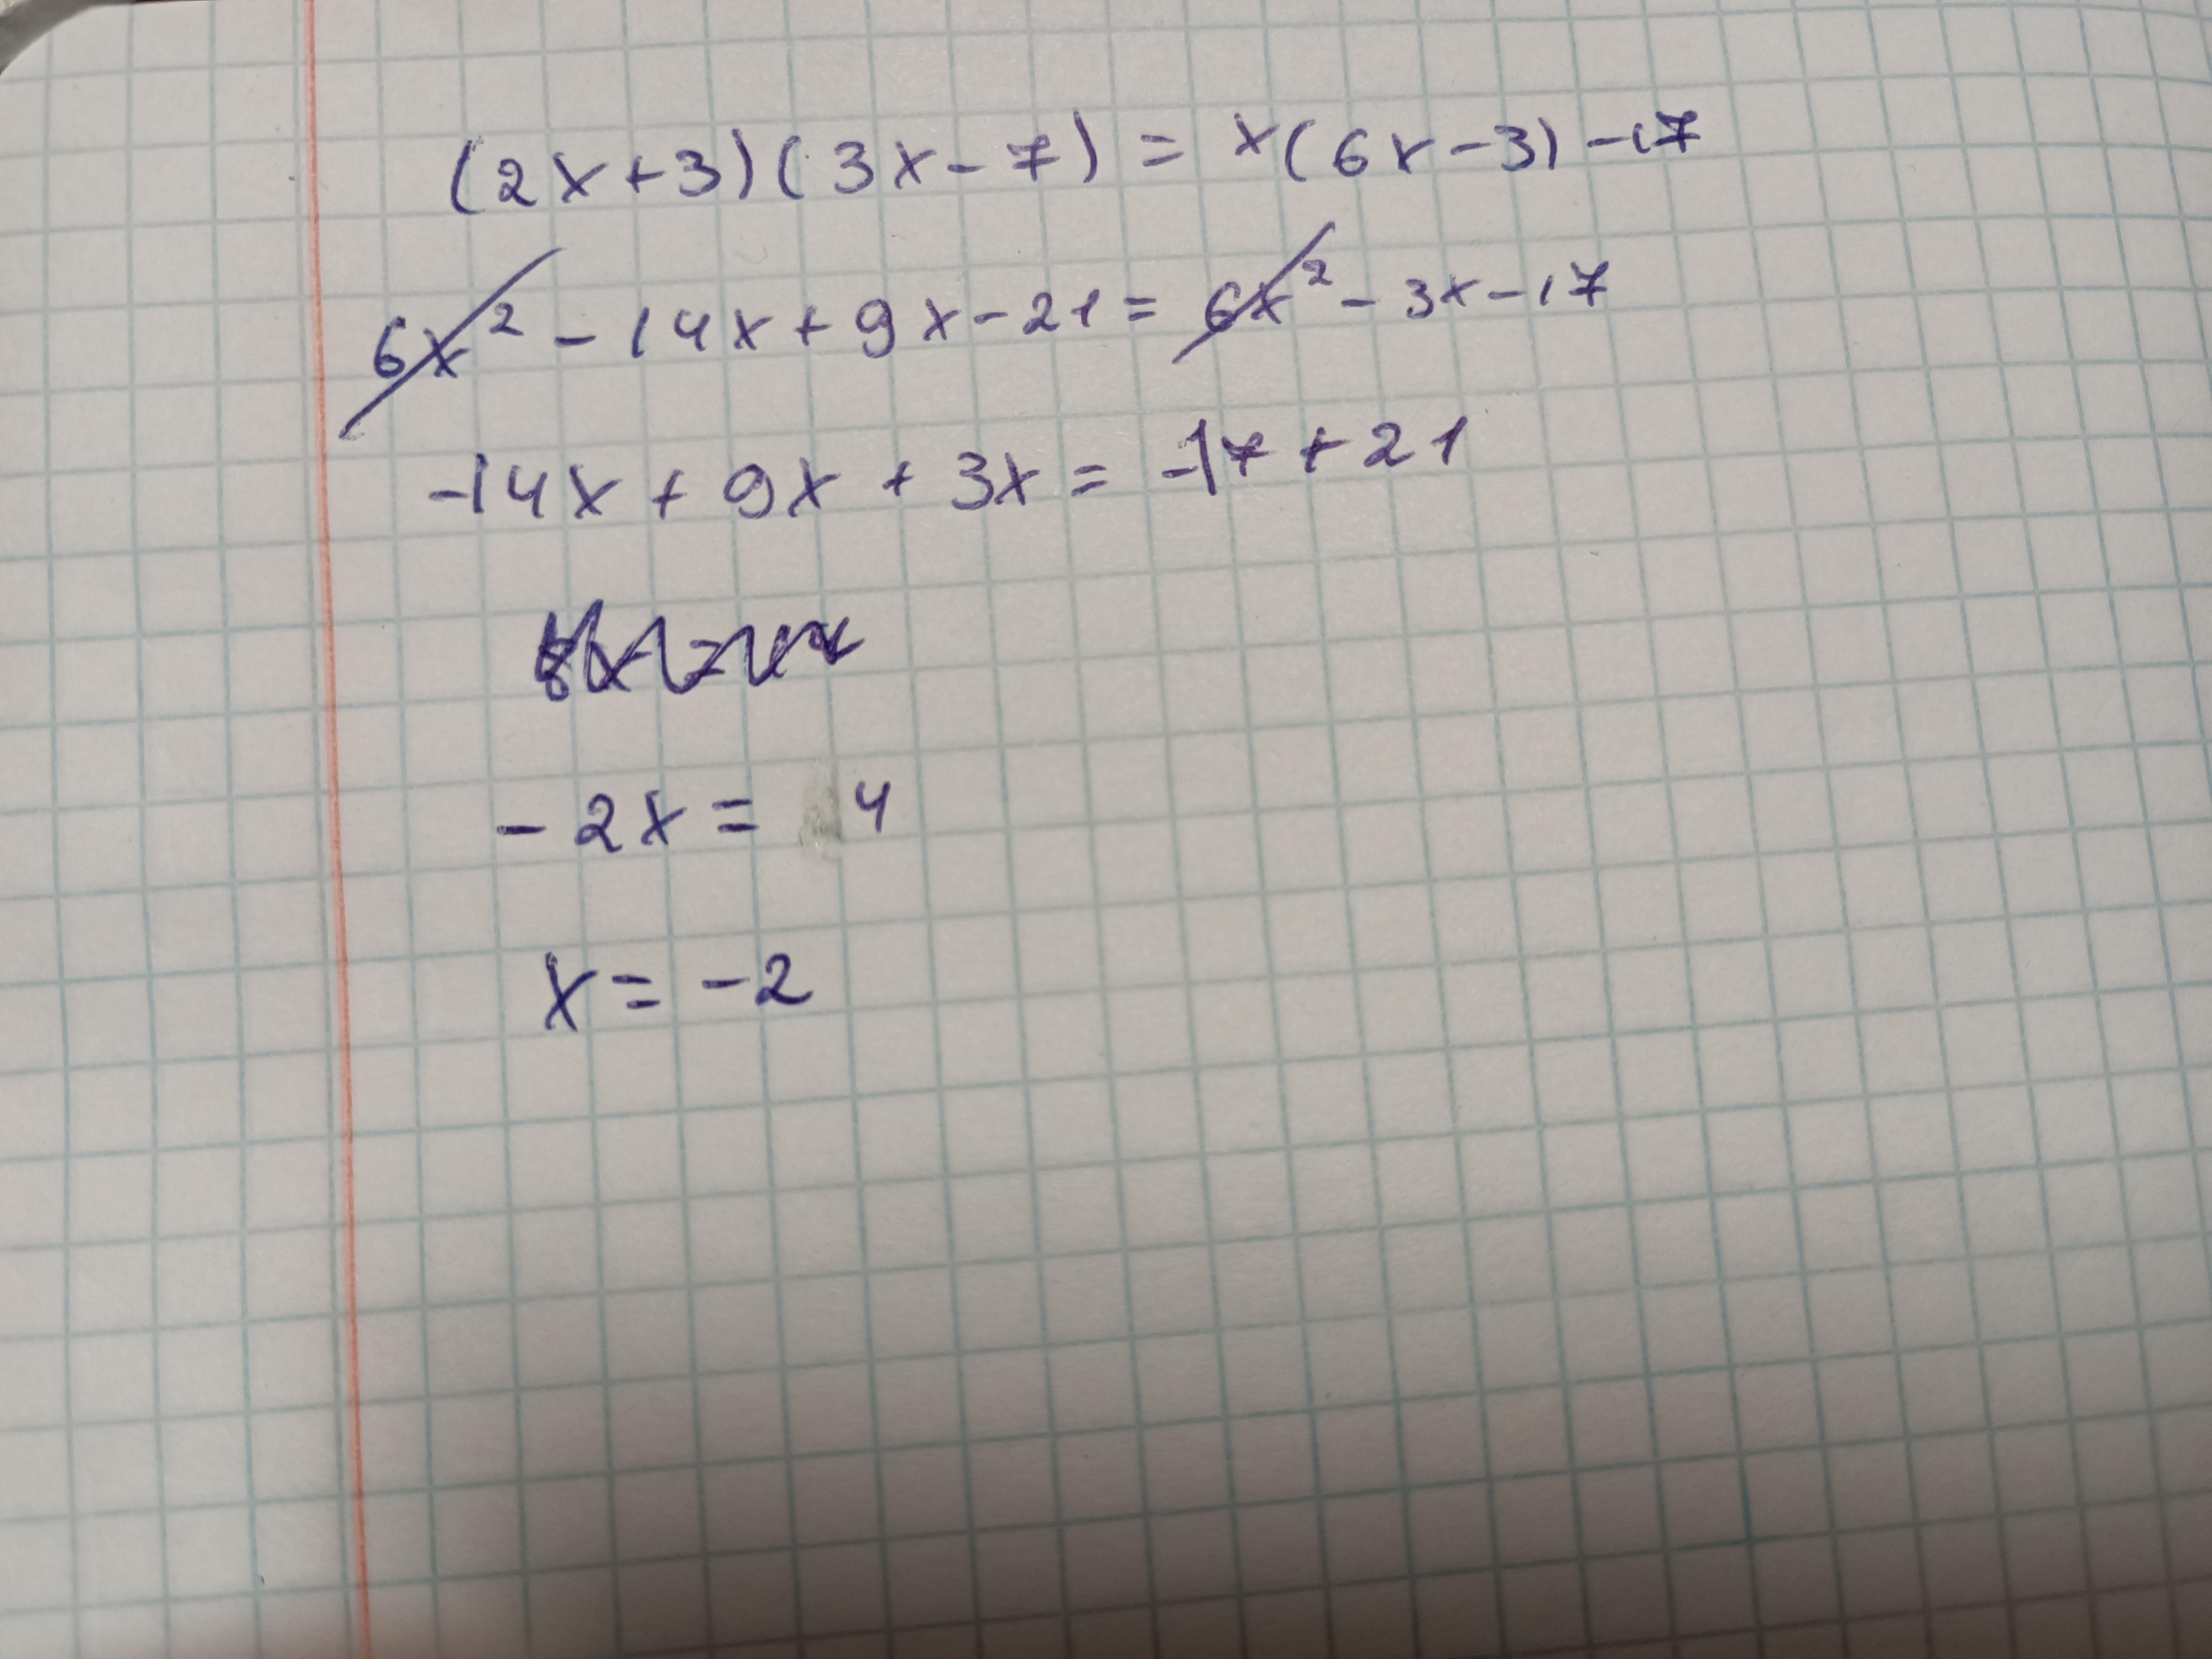 (2x+3)(3x-7) = x(6x-3)-17
6x² - 14x + 9x - 21 = 6x² - 3x - 17
-14x + 9x + 3x = -17 + 21
-2x = 4
x = -2